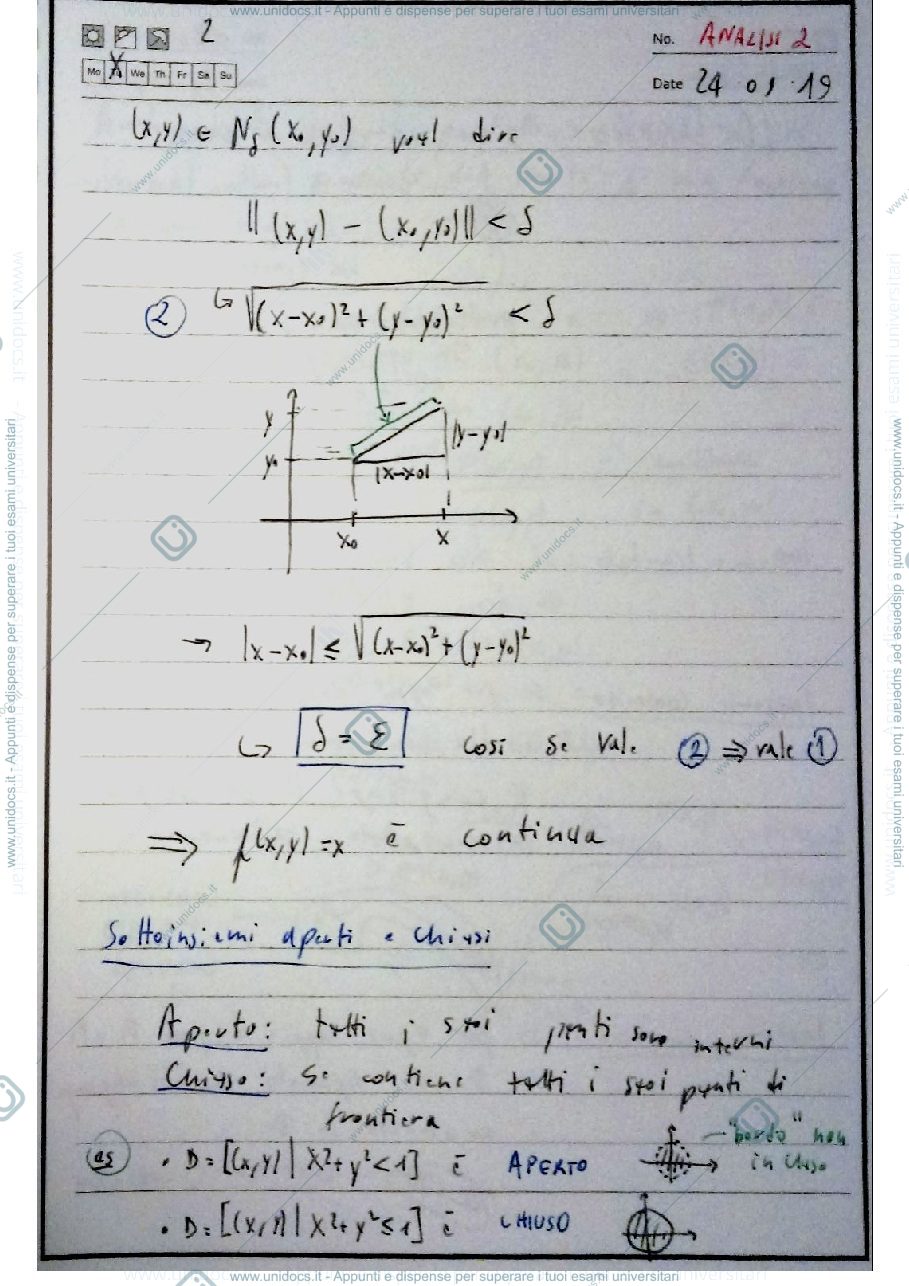 www.unidocs.it - Appunti e dispense per superare i tuoi esami universitari
2
No. ANALISI 2
Mo We Th Fr Sa Su
Date 24 01 19
(x,y) ∈ N_δ (x₀,y₀) vuol dire
|| (x,y) - (x₀,y₀) || < δ
② ↳ √(x-x₀)² + (y-y₀)² < δ
y
|y-y₀|
y₀
|x-x₀|
x₀ x
→ |x-x₀| ≤ √(x-x₀)² + (y-y₀)²
↳ δ = ε così se vale ② ⇒ vale ①
⇒ f(x,y) = x è continua
Sottoinsiemi aperti e chiusi
Aperto: tutti i suoi punti sono interni
Chiuso: se contiene tutti i suoi punti di
frontiera
"bordo" non
es • D = [(x,y) | x²+y² < 1] è APERTO
incluso
• D = [(x,y) | x²+y² ≤ 1] è CHIUSO
www.unidocs.it - Appunti e dispense per superare i tuoi esami universitari